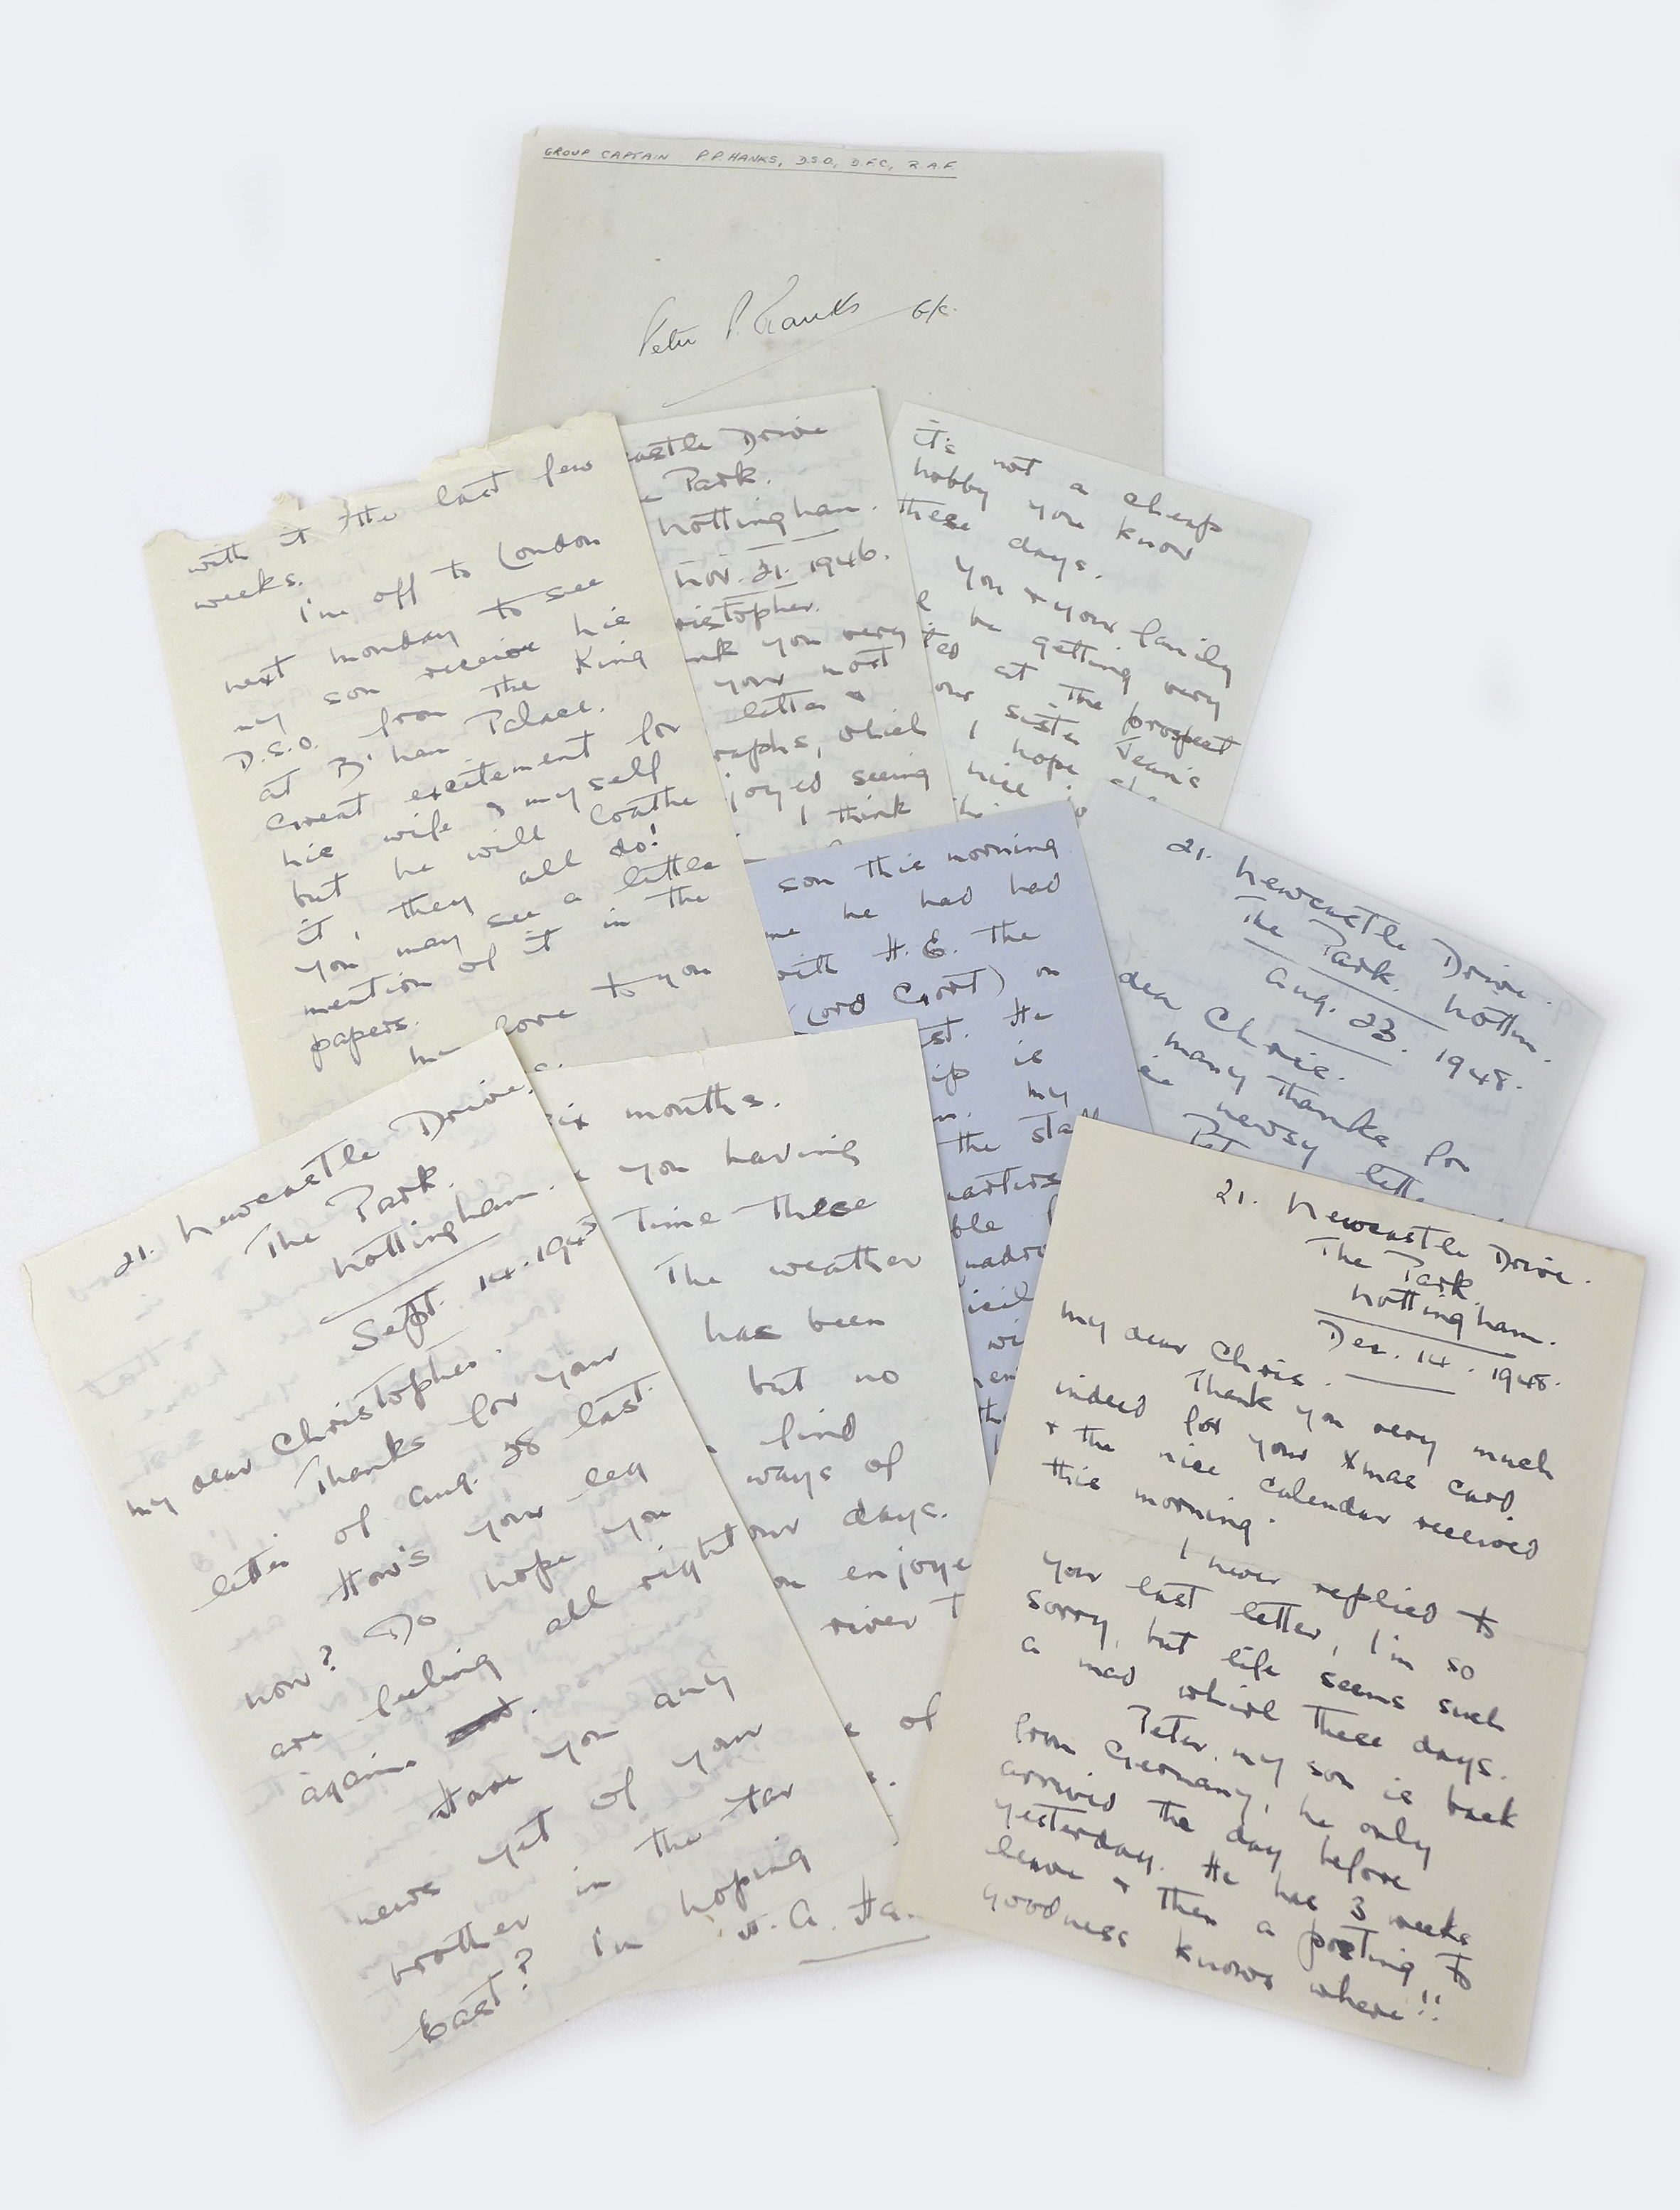 GROUP CAPTAIN P.P. HANKS, D.S.O., D.F.C., R.A.F.
Peter P. Hanks G/C.
with it the last few
weeks.
I'm off to London
next monday to see
my son receive his
D.S.O. from the King
at B'ham Palace.
Great excitement for
his wife & myself
but he will loathe
it, they all do!
You may see a little
mention of it in the
papers.
love to you
castle Drive
Park.
Nottingham.
Nov. 21. 1946.
ristopher.
nk you very
your most
letter &
raphs, which
joyed seeing
I think
it's not a cheap
hobby you know
these days.
You & your family
be getting very
ted at the prospect
our sister Jean's
I hope
nice
son this morning
me he had had
with H.E. the
(Lord Gort) on
st. He
ip is
my
the sta
uarters
ble
uadro
21. Newcastle Drive.
The Park. Nottm.
Aug. 23. 1948.
dear Chris.
many thanks for
newsy lette
21. Newcastle Drive.
The Park.
Nottingham.
Sept. 14. 1945
My dear Christopher.
Thanks for your
letter of Aug. 28 last.
How's your leg
now? Do hope you
are feeling all right
again.
Have you any
news yet of your
brother in the Far
East? I'm hoping
ix months.
you having
Time these
The weather
has been
but no
find
ways of
our days.
on enjoye
river T
of
21. Newcastle Drive.
The Park.
Nottingham.
Dec. 14. 1948.
My dear Chris.
Thank you very much
indeed for your Xmas card
& the nice calendar received
this morning.
I never replied to
your last letter, I'm so
sorry, but life seems such
a mad whirl these days.
Peter my son is back
from Germany, he only
arrived the day before
yesterday. He has 3 weeks
leave & then a posting to
goodness knows where!!